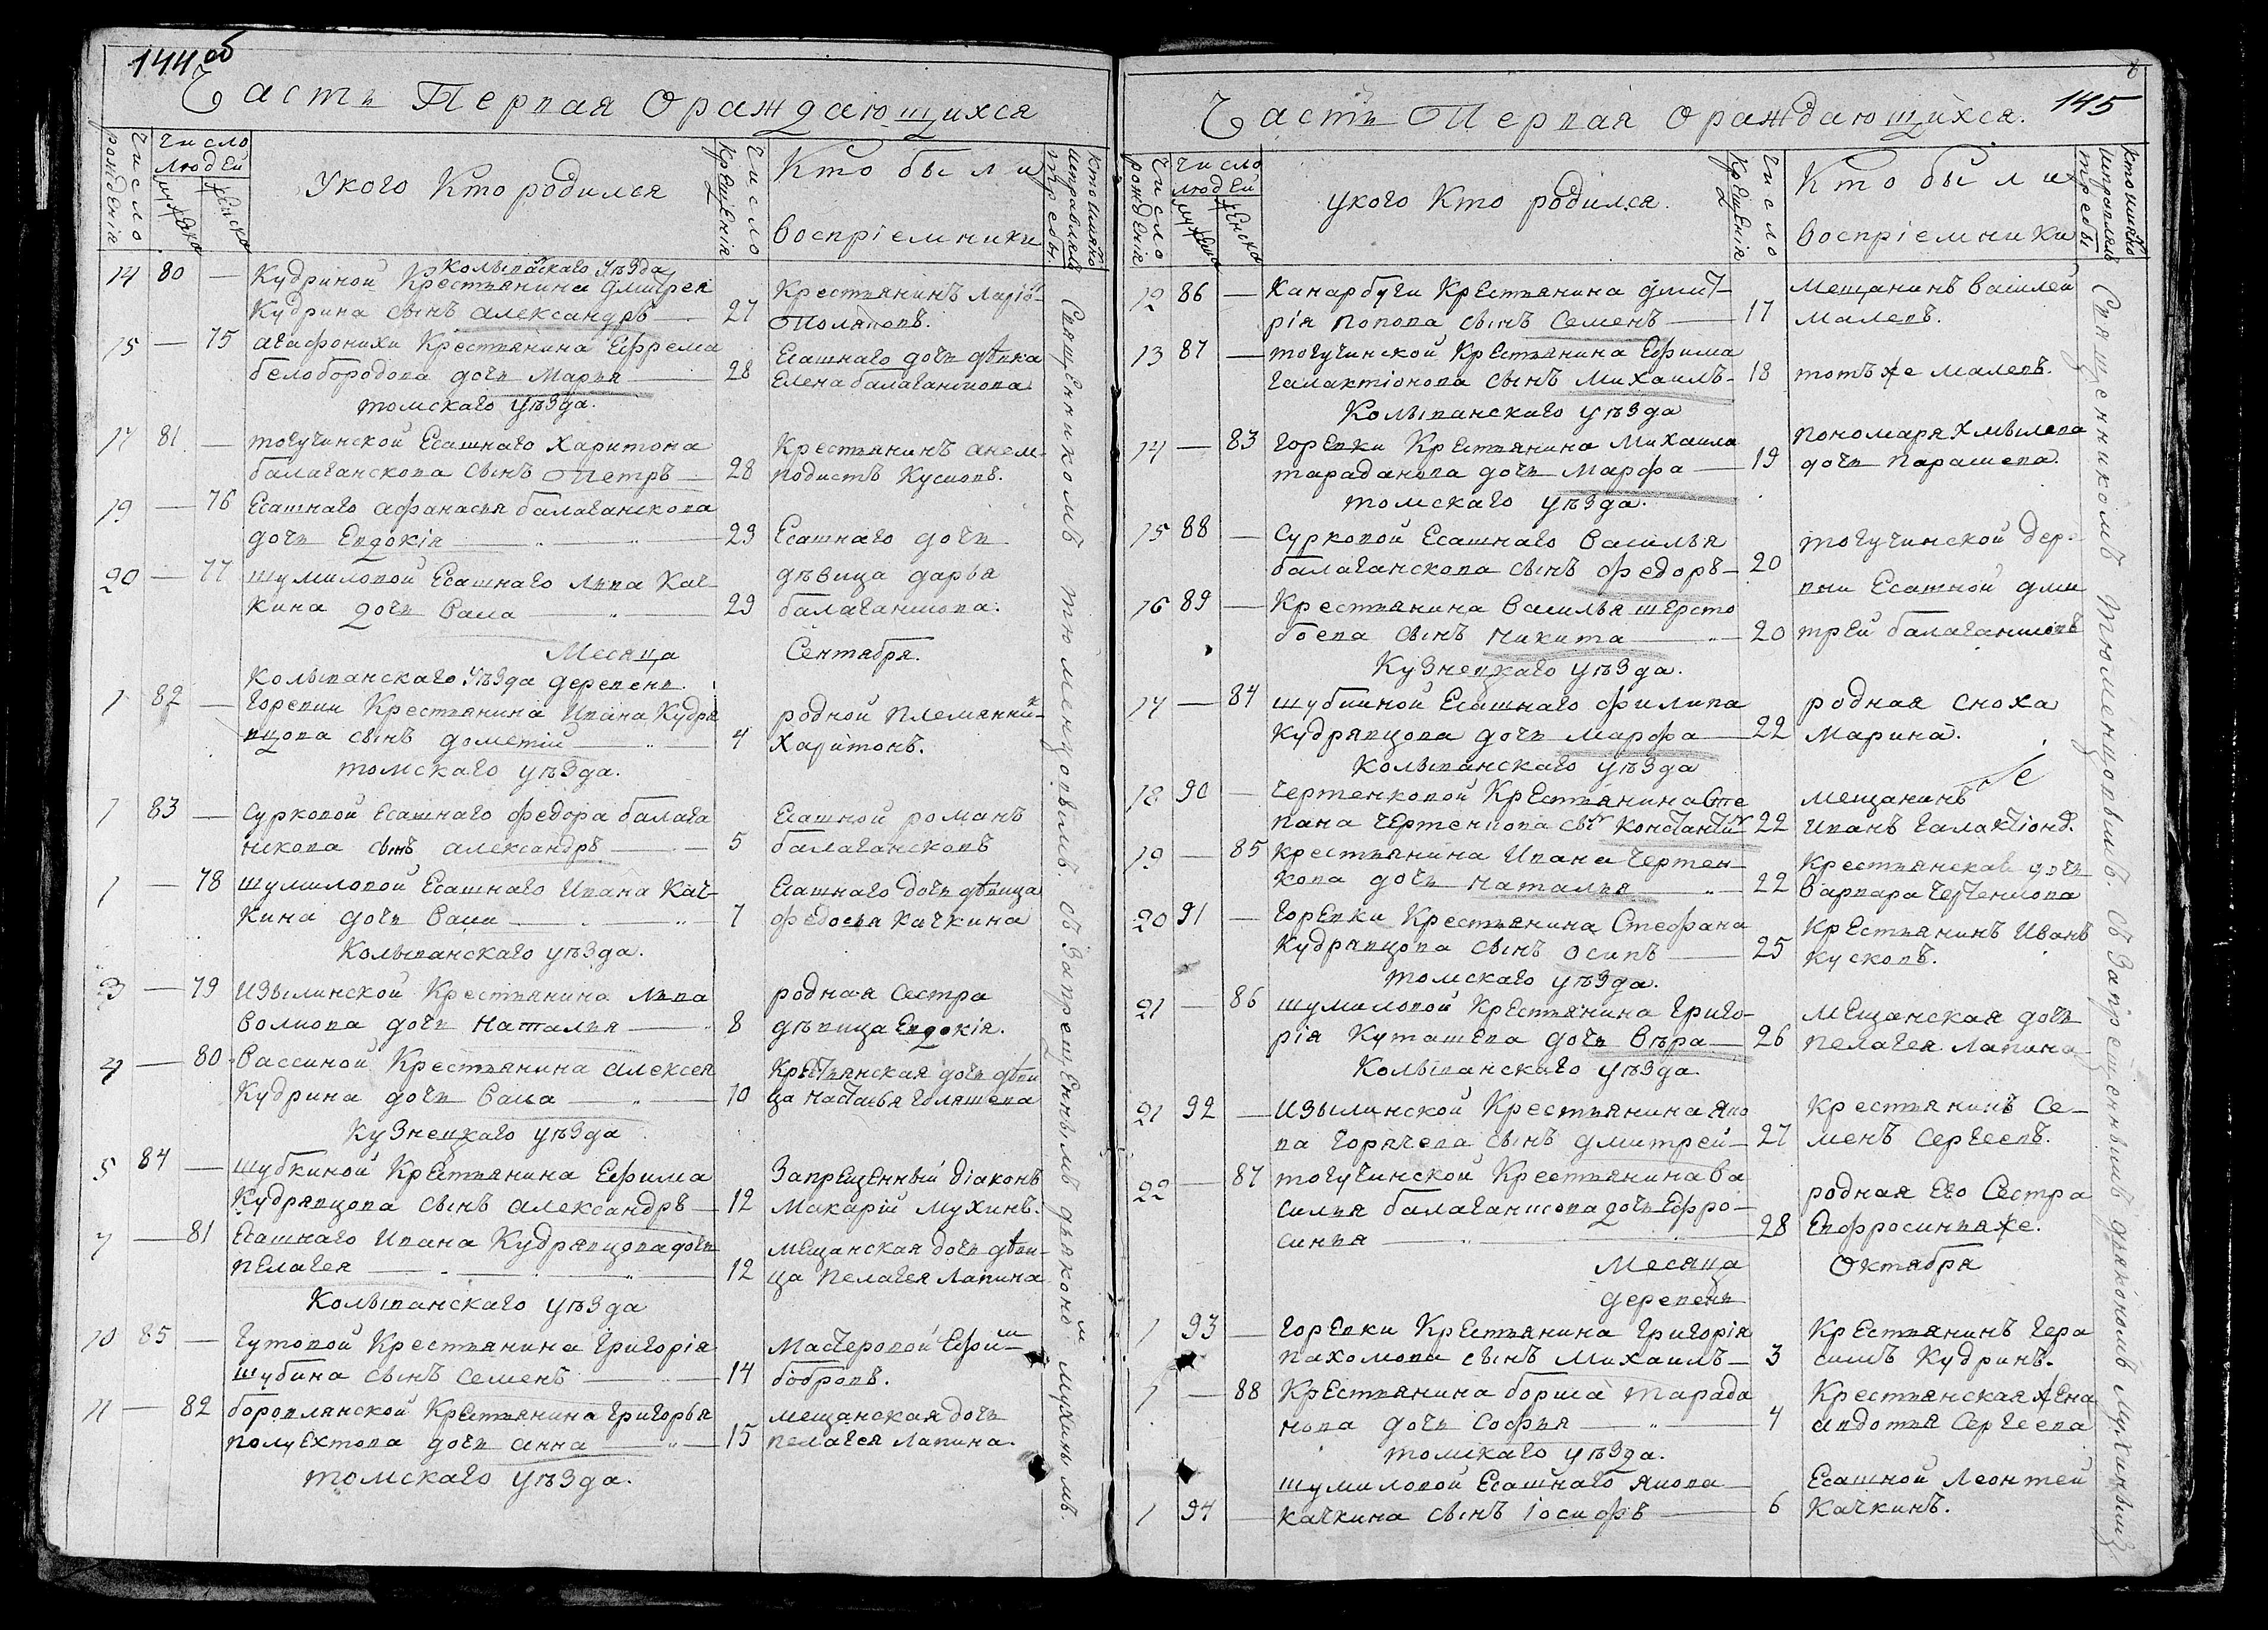 144 об
Часть Первая ораждающихся
Число рожденія
Число людей
мужеска
женска
У кого Кто родился
Число Крещенія
Кто были воспріемники
Кто имяно исправлялъ требы.
14 80 — Колыванскаго уѣзда
Кудриной Крестьянина Дмитрея
Кудрина сынъ александръ — 27 Крестьянинъ Ларіо-
Поляковъ.
15 — 75 агафонихи Крестьянина Ефрема Есашнаго дочь дѣвка
белобородова дочь Марья — 28 Елена балаганскова
томскаго уѣзда.
17 81 — тогучинской Есашнаго Харитона Крестьянинъ анем-
балаганскова сынъ Петръ — 28 подистъ Кусковъ.
19 — 76 Есашнаго афанасья балаганскова
дочь Евдокія — 29 Есашнаго дочь
20 — 77 шумиловой Есашнаго Льва Кач- дѣвица дарья
кина дочь Васа — 29 балаганскова.
Месяца Сентября.
Колыванскаго уѣзда деревень.
1 82 — Горевки Крестьянина Ивана Кудря родной племянни-
вцова сынъ дометій — 4 Харитонъ.
томскаго уѣзда.
1 83 — Сурковой Есашнаго федора балага Есашной романъ
нскова сынъ александръ — 5 балагансковъ
1 — 78 шумиловой Есашнаго Ивана Кач- Есашнаго дочь дѣвица
кина дочь Васа — 7 федосья Качкина
Колыванскаго уѣзда.
3 — 79 Изылинской Крестьянина Льва родная сестра
волкова дочь Наталья — 8 дѣвица Евдокія.
4 — 80 Вассиной Крестьянина алексея Крестьянская дочь дѣви
Кудрина дочь Васа — 10 ца Настасья Голяшева
Кузнецкаго уѣзда
5 84 — Шубкиной Крестьянина Ефима Запрещенный діаконъ
Кудрявцова сынъ александръ — 12 Макарій Мухинъ.
7 — 81 Есашнаго Ивана Кудрявцова дочь Мещанская дочь дѣви-
пелагея — 12 ца Пелагея Лапина
Колыванскаго уѣзда
10 85 — Гутовой Крестьянина григорія Мастеровой Ефим
шубина сынъ семенъ — 14 бобровъ.
11 — 82 боровлянской Крестьянина григорья мещанская дочь
полуехтова дочь анна — 15 пелагея Лапина.
томскаго уѣзда.
Священникомъ тюменцовымъ. Съ Запрещеннымъ дьякономъ мухинымъ.
145
Часть Первая ораждающихся.
Число рожденія
Число людей
мужеска
женска
у кого Кто родился.
Число Крещенія
Кто были воспріемники
Кто имяно исправлялъ требы
12 86 — Канарбуги Крестьянина Дмит- Мещанинъ василей
рія попова сынъ семенъ — 17 малевъ.
13 87 — тогучинской Крестьянина Ефима
галактіонова сынъ михаилъ — 18 тотъ же малевъ.
Колыванскаго уѣзда
14 — 83 горевки Крестьянина Михаила пономаря Хмылева
тараданова дочь марфа — 19 дочь Парасшева.
томскаго уѣзда.
15 88 — Сурковой Есашнаго Василья тогучинской дер-
балаганскова сынъ федоръ — 20 вни Есашной дми
16 89 — Крестьянина василья шерсто
боева сынъ никита — 20 трей балагансковъ
Кузнецкаго уѣзда.
17 — 84 шубкиной Есашнаго филипа родная сноха
Кудрявцова дочь марфа — 22 Марина.
Колыванскаго уѣзда
18 90 — Чертенковой Крестьянина Сте мещанинъ
пана чертенкова сынъ константинъ 22 иванъ галактіонв.
19 — 85 крестьянина Ивана Чертен- Крестьянская дочь
кова дочь наталья — 22 варвара чертенкова
20 91 — горевки Крестьянина Стефана Крестьянинъ Иванъ
Кудрявцова сынъ осипъ — 25 Кусковъ.
томскаго уѣзда.
21 — 86 шумиловой Крестьянина григо- Мещанская дочь
рія Куташева дочь Вѣра — 26 пелагея Лапина
Колыванскаго уѣзда.
21 92 — Изылинской Крестьянина Яко Крестьянинъ Се-
ва горячева сынъ дмитрей — 27 менъ Сергеевъ.
22 — 87 тогучинской Крестьянина Ва
силья балаганскова дочь Ефро- родная его Сестра
синья — 28 Ефросинья же.
Месяца Октября
деревень
1 93 — горевки Крестьянина григорія Крестьянинъ гера
пахомова сынъ Михаилъ — 3 симъ Кудринъ.
1 — 88 Крестьянина бориса тарада Крестьянская жена
нова дочь софья — 4 авдотья Сергеева
томскаго уѣзда.
шумиловой Есашнаго Якова Есашной Леонтей
1 94 — Качкина сынъ іосифъ — 6 Качкинъ.
Священникомъ Тюменцовымъ. Съ Запрещеннымъ дьякономъ мухинымъ